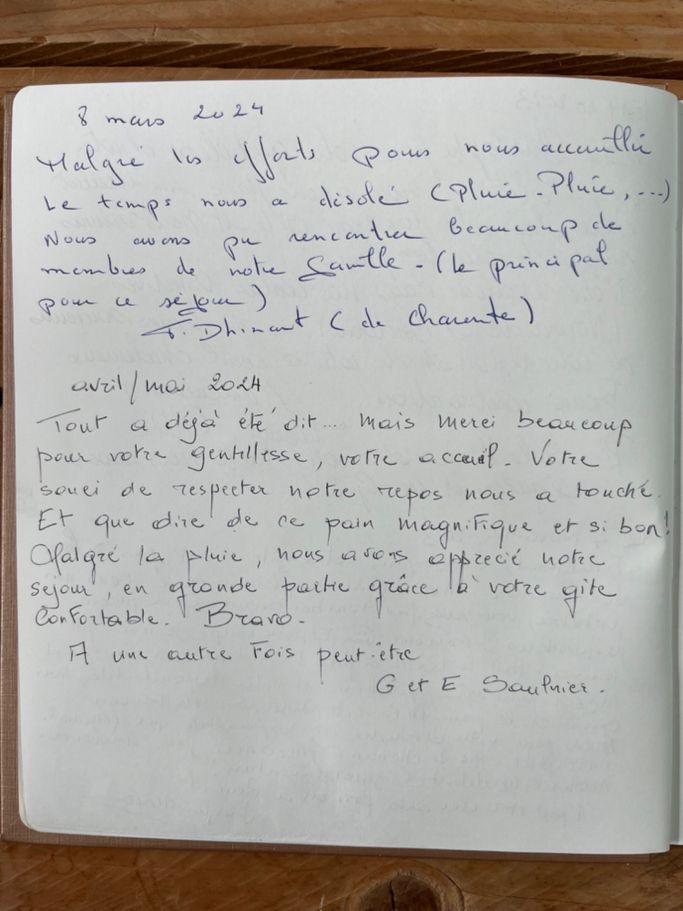 8 mars 2024
Malgré les efforts pour nous accueillir
Le temps nous a désolé (Pluie - Pluie, ...)
Nous avons pu rencontrer beaucoup de
membres de notre famille - (le principal
pour ce séjour)
F. Dhinaut (de Charente)
avril/mai 2024
Tout a déjà été dit... mais merci beaucoup
pour votre gentillesse, votre accueil. Votre
souci de respecter notre repos nous a touché.
Et que dire de ce pain magnifique et si bon!
Malgré la pluie, nous avons apprecié notre
séjour, en grande partie grâce à votre gite
Confortable. Bravo.
A une autre fois peut-être
G et E Saulnier.